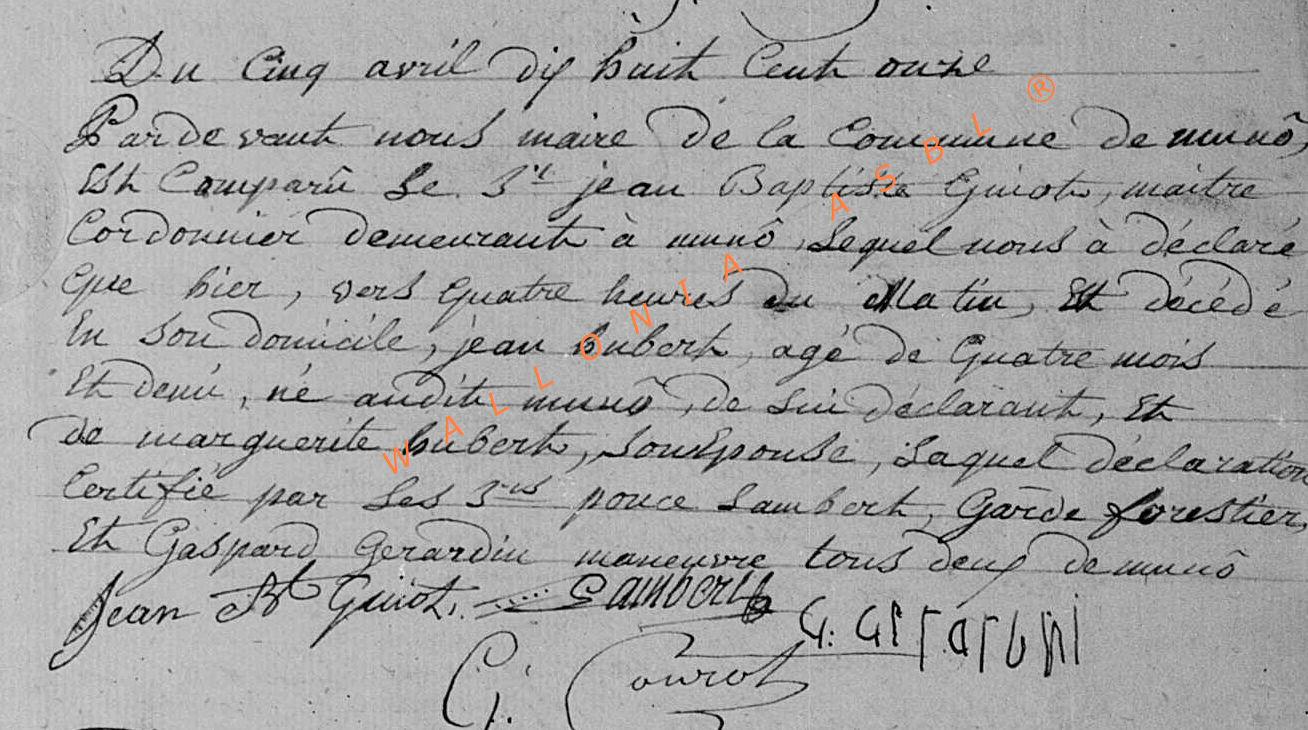 Du Cinq avril dix huit Cent onze
Pardevant nous maire de la Commune de munô,
Est Comparû Le Sr jean Baptiste Guiot, maître
Cordonnier demeurant à munô, Lequel nous à déclaré
que hier, vers quatre heures du Matin, Est décédé
En Son domicile, jean hubert, agé de quatre mois
Et demi, né audit munô, de Lui déclarant, Et
de marguerite hubert, Son Epouse, Laquel déclaration
Certifié par Les Srs ponce Lambert, Garde forestier,
Et Gaspard Gerardin maneuvre tous deux de munô
Jean Bt Guiot. Lambert G. Gerardin
G. Courot
WALLONIA ASBL ®